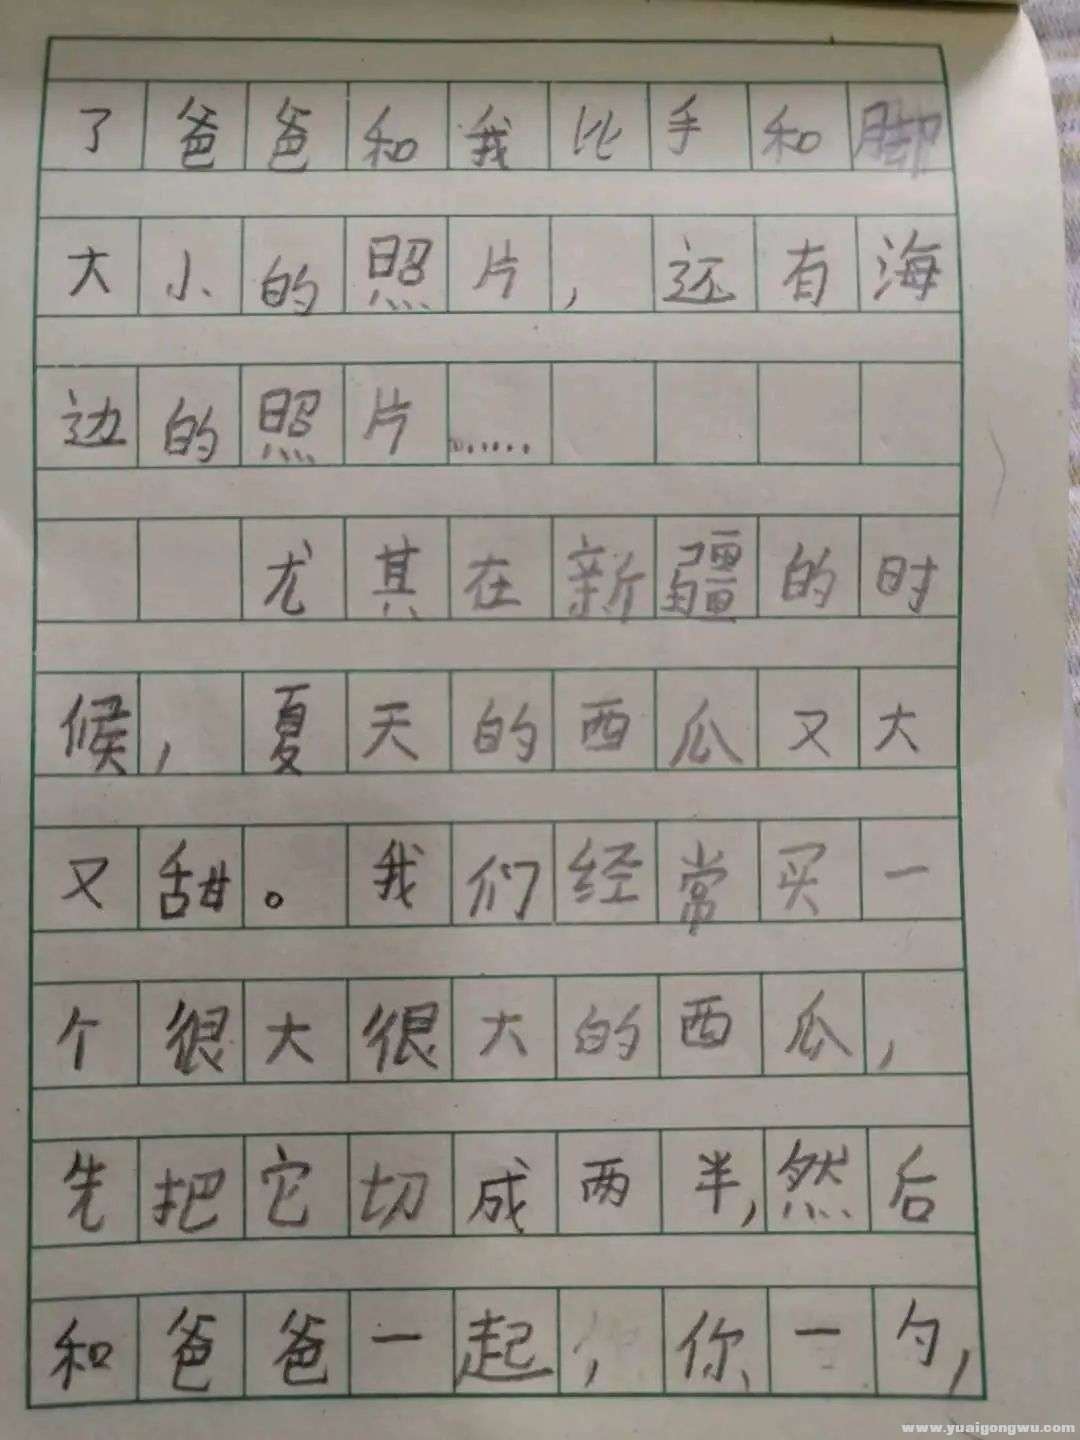 了爸爸和我比手和脚
大小的照片，还有海
边的照片……
尤其在新疆的时
候，夏天的西瓜又大
又甜。我们经常买一
个很大很大的西瓜，
先把它切成两半，然后
和爸爸一起，你一勺，
www.yuaigongwu.com